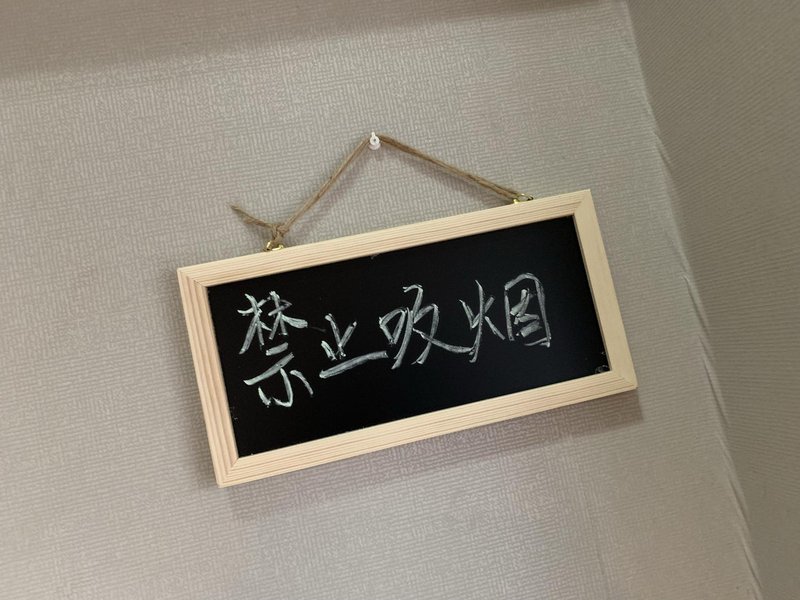 禁止吸烟